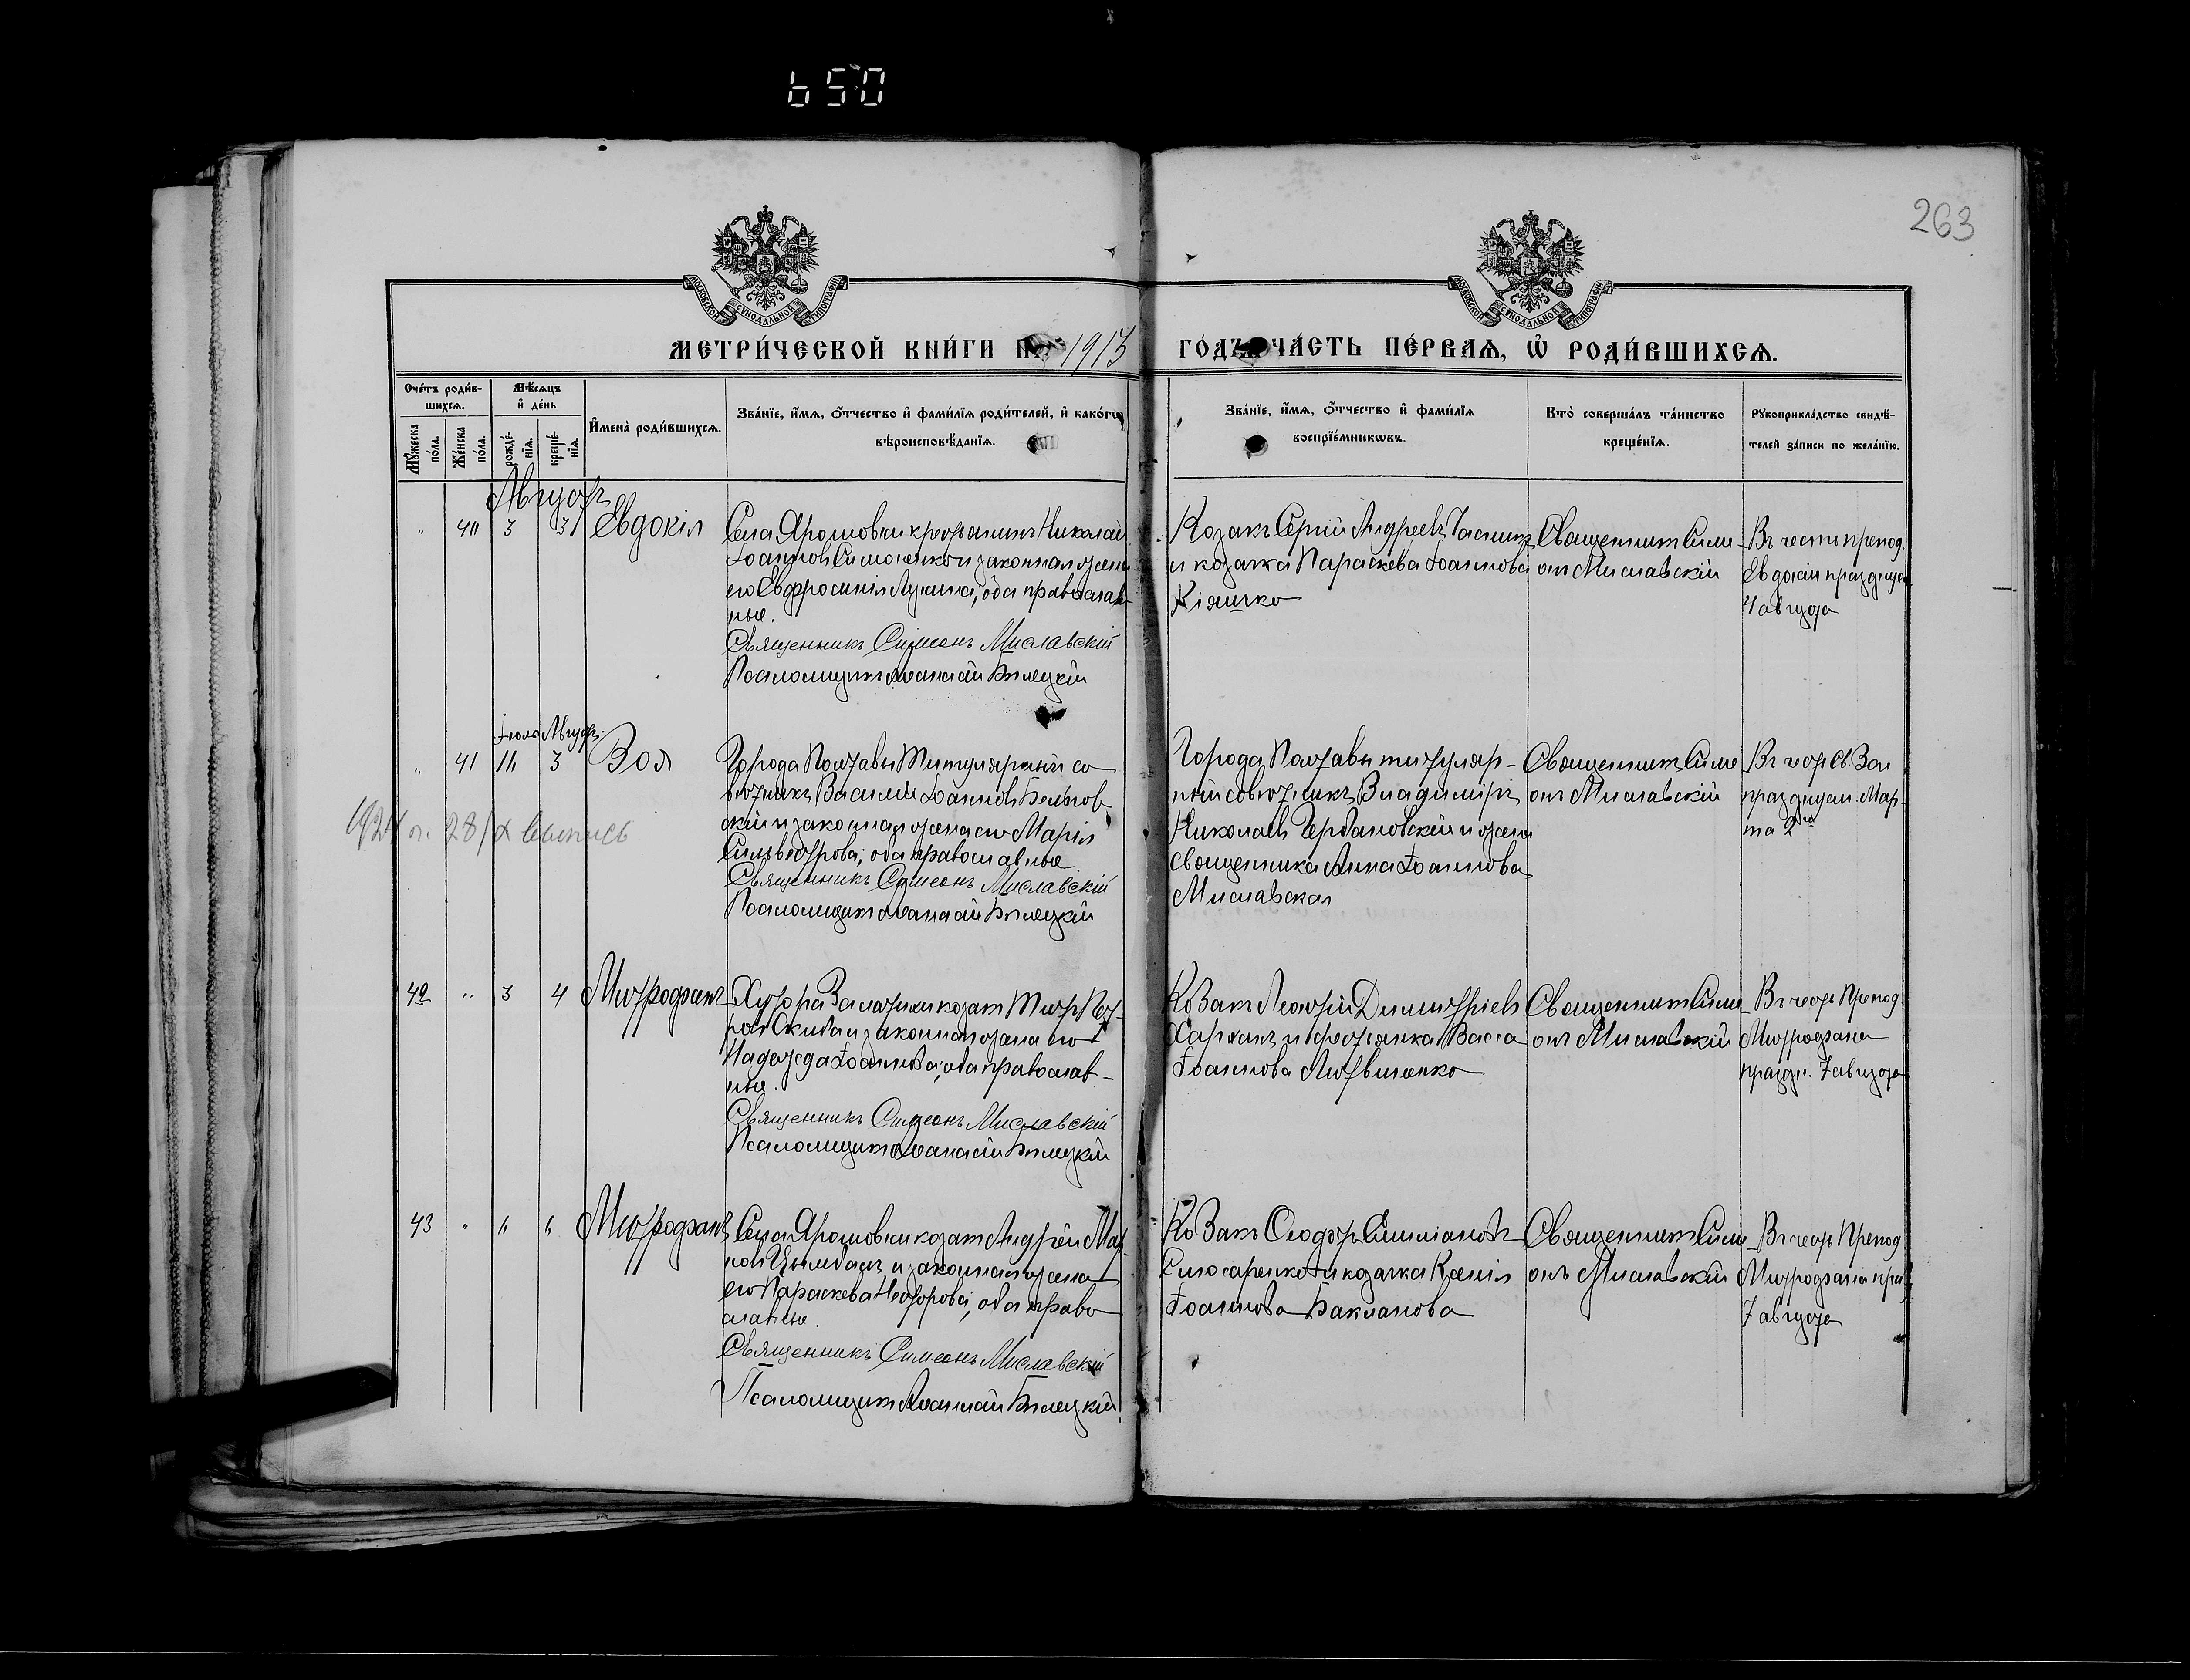 650
263
МОСКОВСКОЙ СУНОДАЛЬНОЙ ТИПОГРАФІИ
МОСКОВСКОЙ СУНОДАЛЬНОЙ ТИПОГРАФІИ
МЕТРИ́ЧЕСКОЙ КНИ́ГИ 1913
ГО́ДЪ ЧА́СТЬ ПЕ́РВАЯ, Ѡ РОДИ́ВШИХСЯ.
Сче́тъ роди́в-
шихся.
Мѣ́сяцъ
и де́нь
Мꙋ́жеска по́ла.
Же́нска по́ла.
рожде́-
нїя.
креще́-
нїя.
Имена̀ роди́вшихся.
Зва́нїе, и́мя, ѻ́тчество и фами́лїя роди́телей, и како́гѡ
вѣроисповѣ́данїя.
Зва́нїе, и́мя, ѻ́тчество и фами́лїя
воспрїе́мникѡвъ.
Кто̀ соверша́лъ та́инство
креще́нїя.
Рꙋкоприкла́дство свидѣ́-
телей за́писи по жела́нїю.
Августъ
" 40 3 3 Евдокія
Села Ярошовки крестьянинъ Николай
Іоанновъ Симоненко и законная жена
его Евфросинія Лукина, оба православ-
ные.
Священникъ Симеонъ Миславскій
Псаломщикъ Аѳанасій Бѣлецкій
Козакъ Сергій Андреевъ
и козачка Параскева Іоаннова
Кіяшко
Священникъ Симе-
онъ Миславскій
Въ честь препод.
Евдокіи празднуем.
4 августа
Іюль Августъ
" 41 16 3 Зоя
Города Полтавы Титулярный со-
вѣтникъ Василій Іоанновъ
скій и законная жена его Марія
Сильвестрова, оба православные
Священникъ Симеонъ Миславскій
Псаломщикъ Аѳанасій Бѣлецкій
Города Полтавы титуляр-
ный совѣтникъ Владиміръ
Николаевъ Чербановскій и жена
священника Анна Іоаннова
Миславская
Священникъ Симе-
онъ Миславскій
Въ честь св. Зои
празднуем. Мар-
та 2го
1924 г. 28/X выпись
42 " 3 4 Митрофанъ
Хутора козакъ Титъ Пет-
ровъ Скиба и законная жена его
Надежда Іоаннова, оба православ-
ные.
Священникъ Симеонъ Миславскій
Псаломщикъ Аѳанасій Бѣлецкій
Козакъ Леонтій Димитріевъ
и крестьянка Васса
Іоаннова Литвиненко
Священникъ Симе-
онъ Миславскій
Въ честь Препод.
Митрофана
праздн. 7 августа
43 " 6 6 Митрофанъ
Села Ярошовки козакъ Андрей
Цымбалъ и законная жена
его Параскева Несторова, оба право-
славные.
Священникъ Симеонъ Миславскій
Псаломщикъ Аѳанасій Бѣлецкій
Козакъ Ѳеодоръ
Слюсаренко и козачка Ксенія
Іоаннова Бакланова
Священникъ Симе-
онъ Миславскій
Въ честь Препод.
Митрофана праз.
7 августа